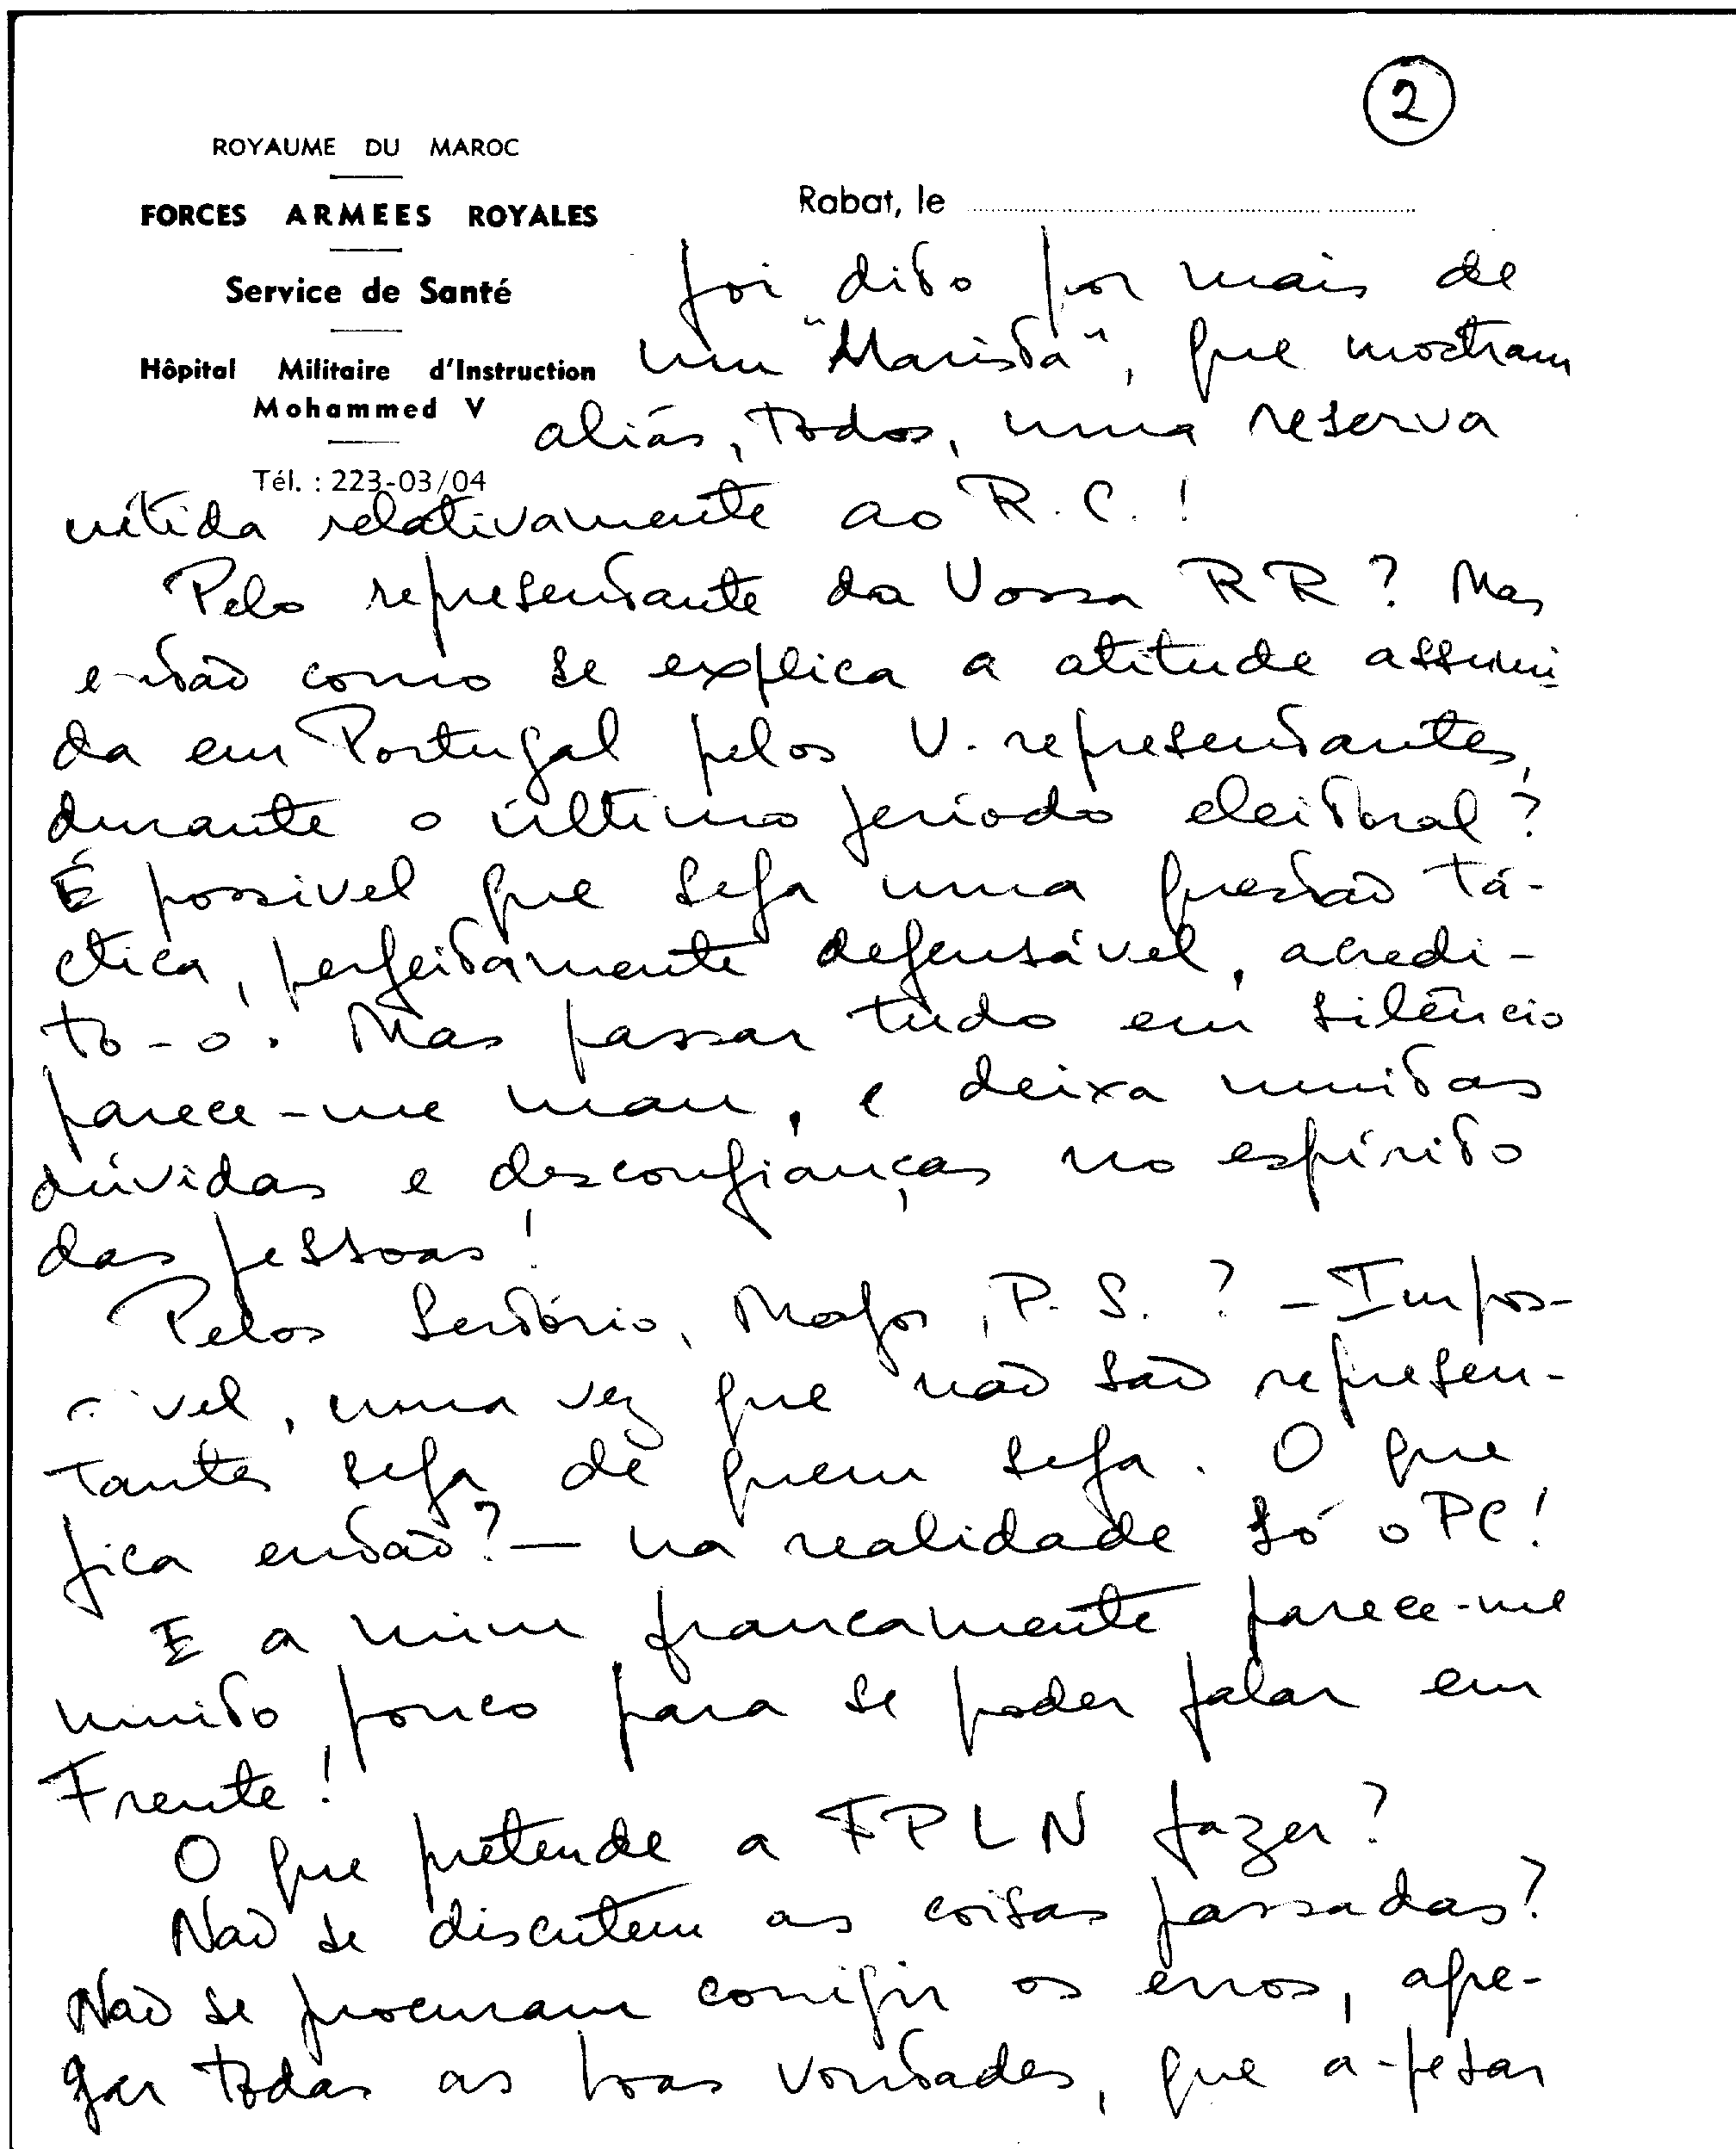 2
ROYAUME DU MAROC
FORCES ARMEES ROYALES
Rabat, le
Service de Santé
Hôpital Militaire d'Instruction
Mohammed V
Tél. : 223-03/04
foi dito por mais de
um "Marista", que mostram
aliás, todos, uma reserva
nítida relativamente ao R. C. !
Pelo representante da Vossa RR ? Mas
então como se explica a atitude assumi
da em Portugal pelos V. representantes,
durante o último período eleitoral ?
É possivel que seja uma questão tá-
ctica, perfeitamente defensável, acredi-
to-o. Mas passar tudo em silêncio
parece-me mau, e deixa muitas
dúvidas e desconfianças no espírito
das pessoas !
Pelos Sertório, P. S. ? - Impos-
sivel, uma vez que não são represen-
tantes seja de quem seja. O que
fica então ? — na realidade só o PC !
E a mim francamente parece-me
muito pouco para se poder falar em
Frente !
O que pretende a FPLN fazer ?
Não se discutem as coisas passadas ?
Não se procuram corrigir os erros, a
todas as boas vontades, que a-pesar